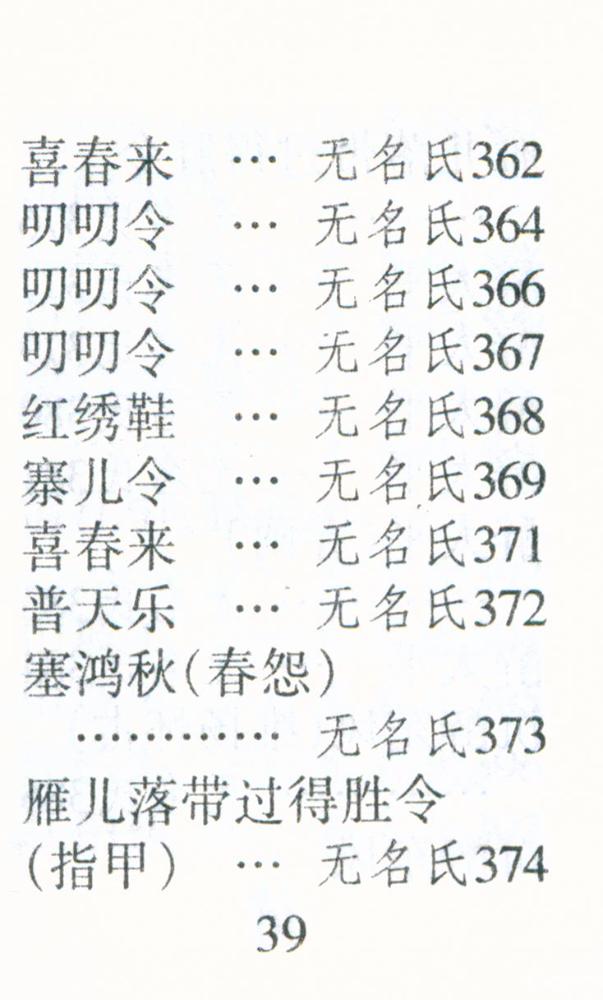 喜春来 … 无名氏362
叨叨令 … 无名氏364
叨叨令 … 无名氏366
叨叨令 … 无名氏367
红绣鞋 … 无名氏368
寨儿令 … 无名氏369
喜春来 … 无名氏371
普天乐 … 无名氏372
塞鸿秋(春怨)
………… 无名氏373
雁儿落带过得胜令
(指甲) … 无名氏374
39